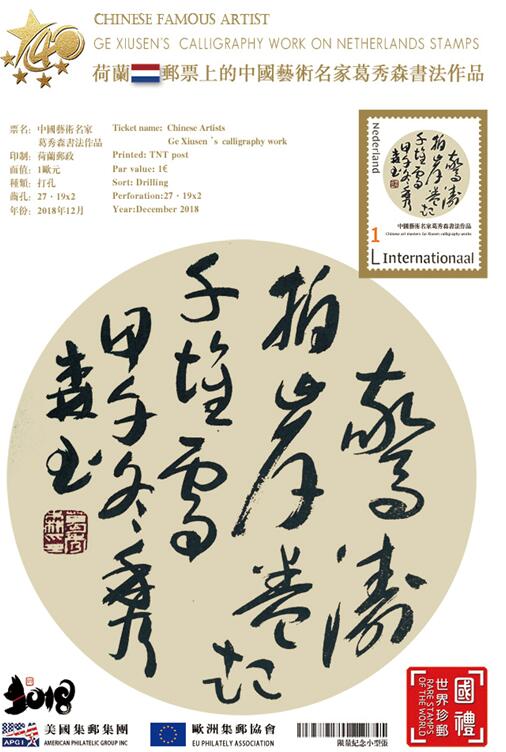 140
CHINESE FAMOUS ARTIST
GE XIUSEN'S CALLIGRAPHY WORK ON NETHERLANDS STAMPS
荷蘭郵票上的中國藝術名家葛秀森書法作品
票名：中國藝術名家
葛秀森書法作品
印制：荷蘭郵政
面值：1歐元
種類：打孔
齒孔：27·19x2
年份：2018年12月
Ticket name: Chinese Artists
Ge Xiusen 's calligraphy work
Printed: TNT post
Par value: 1€
Sort: Drilling
Perforation:27·19x2
Year:December 2018
Nederland
驚濤
拍岸卷起
千堆雪
甲午冬秀
森书
中國藝術名家葛秀森書法作品
Chinese art masters Ge Xiusen calligraphy works
1
L Internationaal
驚濤
拍岸卷起
千堆雪
甲午冬秀
森书
2018
APGI
美國集郵集團
AMERICAN PHILATELIC GROUP INC
歐洲集郵協會
EU PHILATELY ASSOCIATION
限量紀念小型張
國禮
世界珍郵
RARE STAMPS
OF THE WORLD